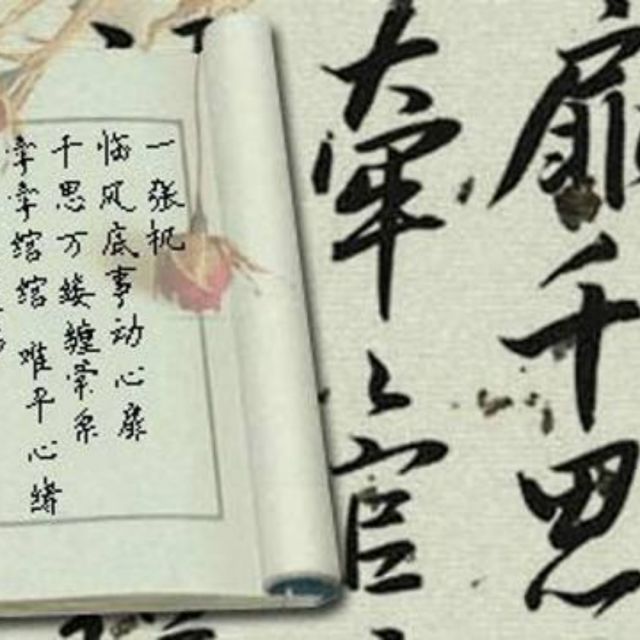 扉千思
牵々官
一张机
临风底事动心扉
千思万缕缠萦系
牵牵绾绾 难平心绪